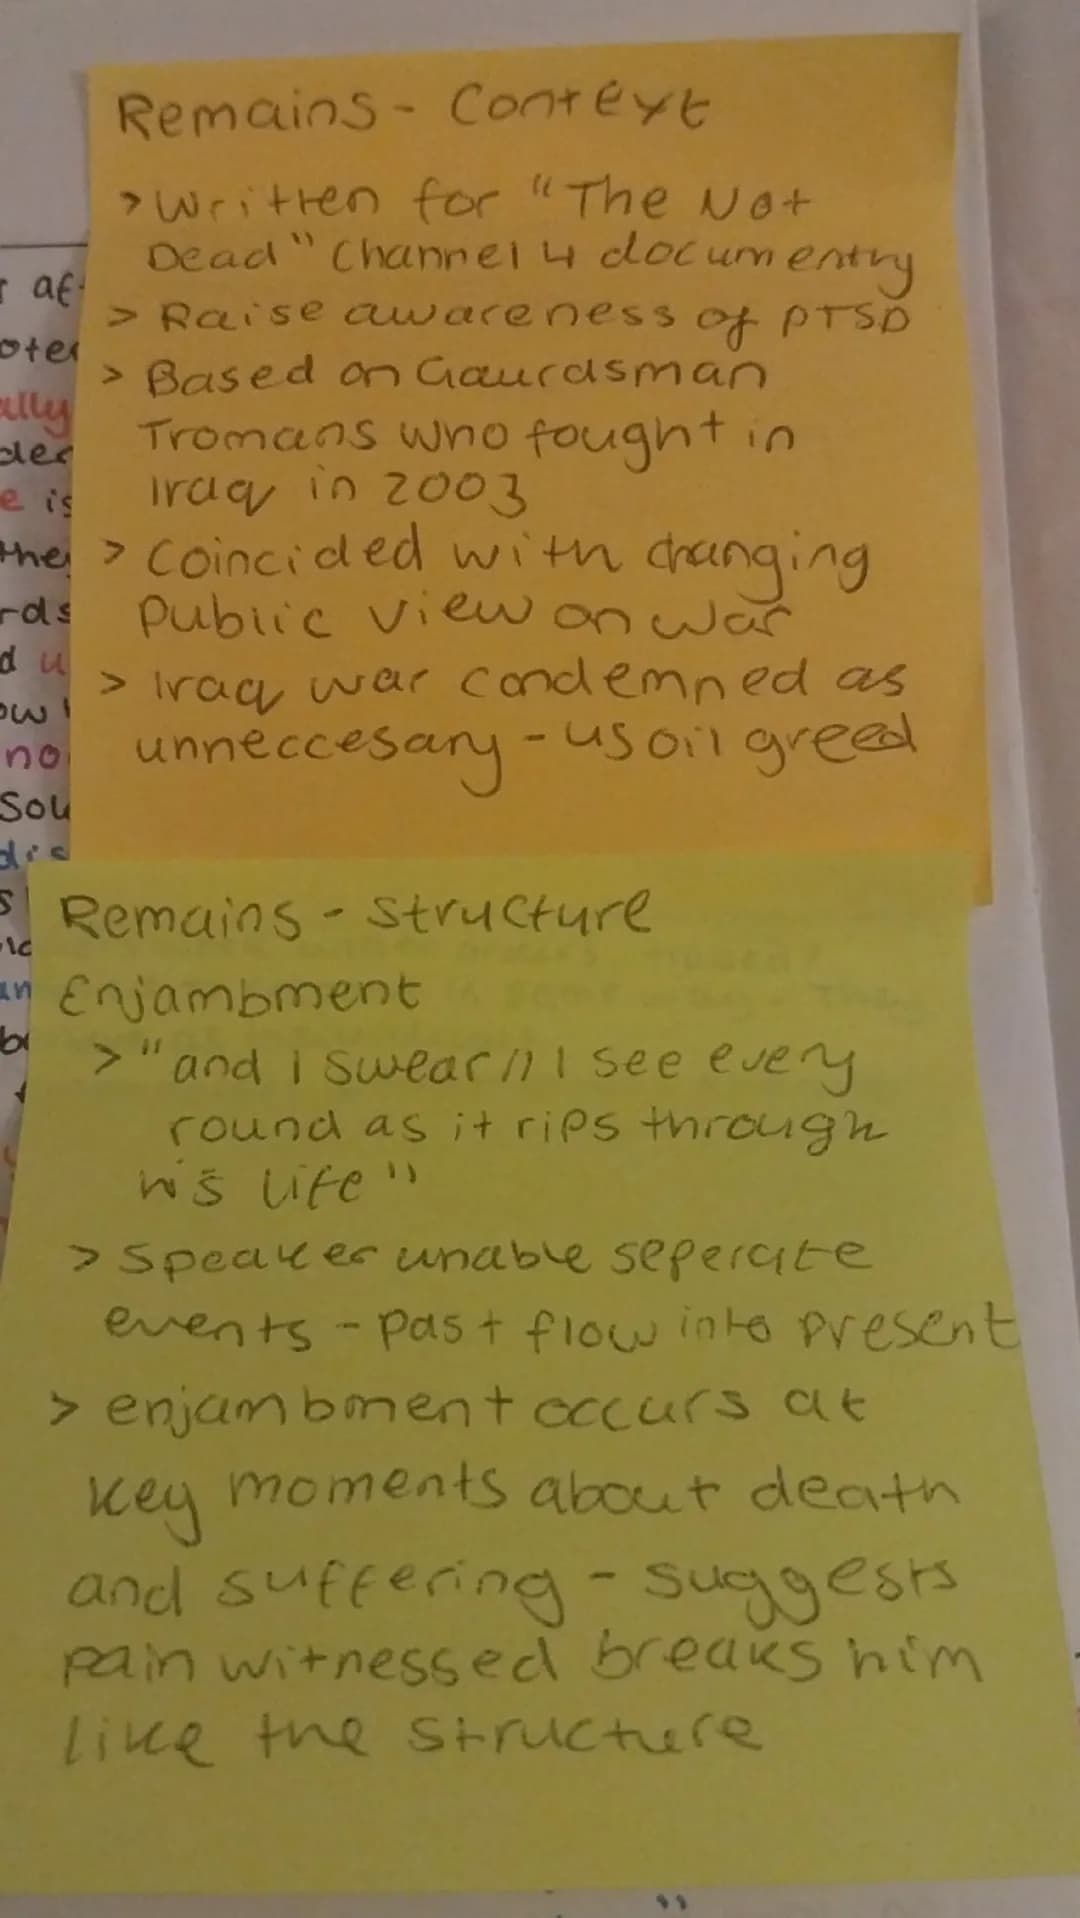 Remains - Context
> Written for "The Not
Dead" Channel 4 documentry
> Raise awareness of PTSD
> Based on Gaurdsman
Tromans who fought in
Iraq in 2003
> Coincided with changing
Public view on war
> Iraq war condemned as
unneccesary - US oil greed
Remains - Structure
Enjambment
> "and I swear // I see every
round as it rips through
his life"
> Speaker unable seperate
events - past flow into present
> enjambment occurs at
key moments about death
and suffering - suggests
pain witnessed breaks him
like the structure